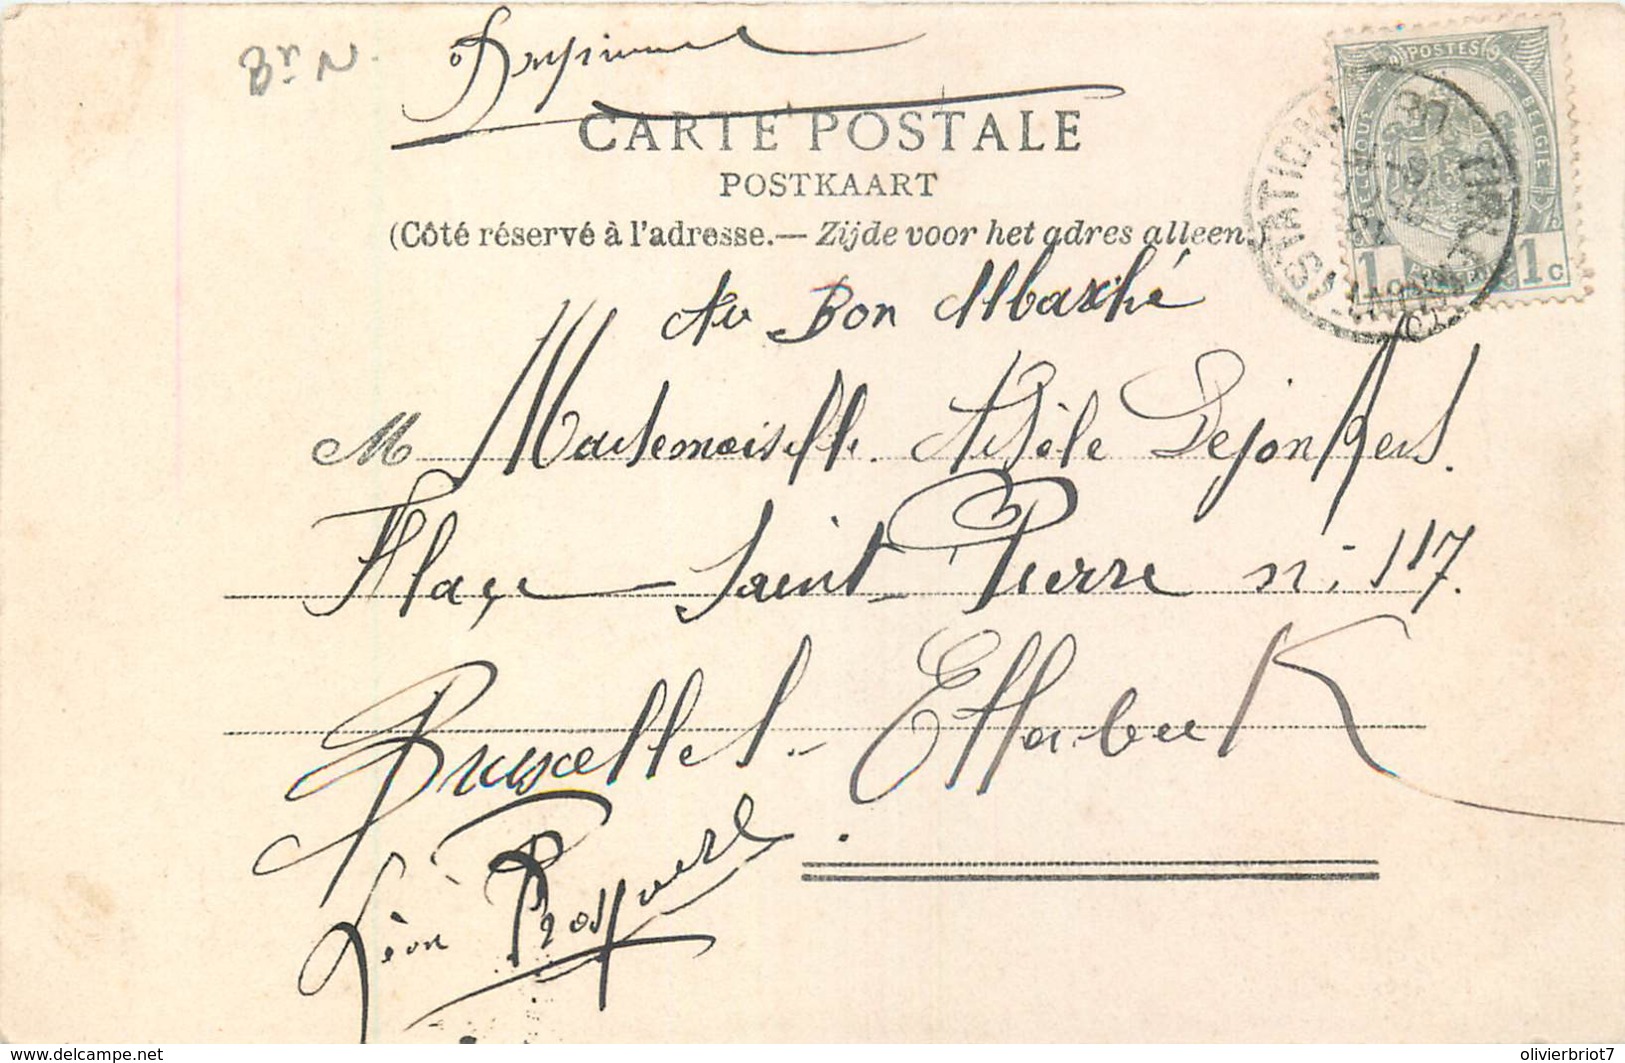 Br N.
Imprimé
POSTES
CARTE POSTALE
BELGIQUE BELGIË
POSTKAART
(Côté réservé à l'adresse.— Zijde voor het adres alleen.)
1c 1c
Au Bon Marché
M Mademoiselle Adèle Dejonkers.
Place Saint Pierre n: 117.
Bruxelles. Etterbeek
Léon
www.delcampe.net
olivierbriot7